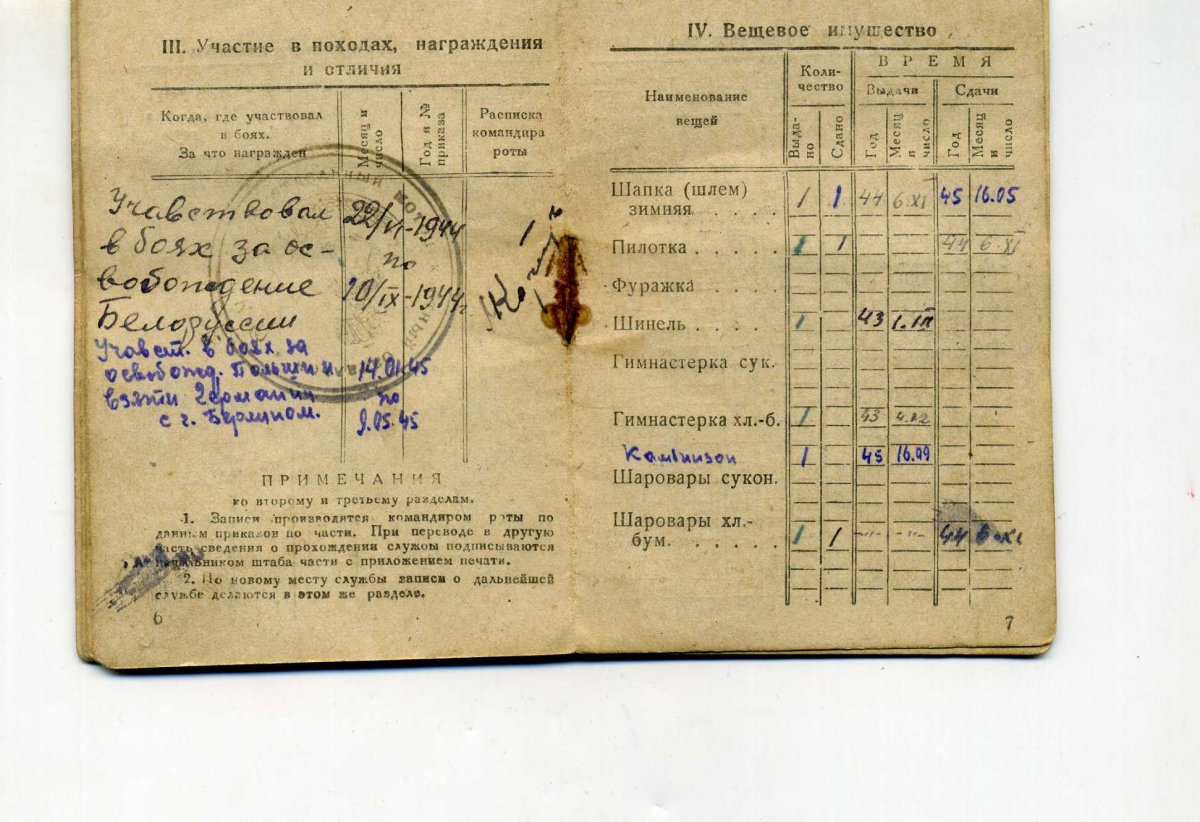 III. Участие в походах, награждения
и отличия
Когда, где участвовал
в боях.
За что награжден
Месяц и
число
Год и №
приказа
Расписка
командира
роты
Учавствовал 22/VI-1944
в боях за ос- по
вобождение 10/IX-1944г
Белоруссии
Учавст. в боях за
освобожд. Польши и 14.01.45
взяти Германии по
с г. Берлином. 9.05.45
ПРИМЕЧАНИЯ
ко второму и третьему разделам.
1. Записи производятся командиром роты по
данным приказов по части. При переводе в другую
часть сведения о прохождении службы подписываются
начальником штаба части с приложением печати.
2. По новому месту службы записи о дальнейшей
службе делаются в этом же разделе.
6
IV. Вещевое имущество
Наименование
вещей
Коли-
чество
ВРЕМЯ
Выдачи
Сдачи
Выда-
но
Сдано
Год
Месяц
и
число
Год
Месяц
и
число
Шапка (шлем)
зимняя . . . . . 1 1 44 6.XI 45 16.05
Пилотка . . . . . 1 1 44 6.XI
Фуражка . . . . .
Шинель . . . . . 1 43 1.III
Гимнастерка сук.
Гимнастерка хл.-б. 1 43
1 45 16.09
Шаровары сукон.
Шаровары хл.-
бум. . . . . . 1 1 44 6-XI
7